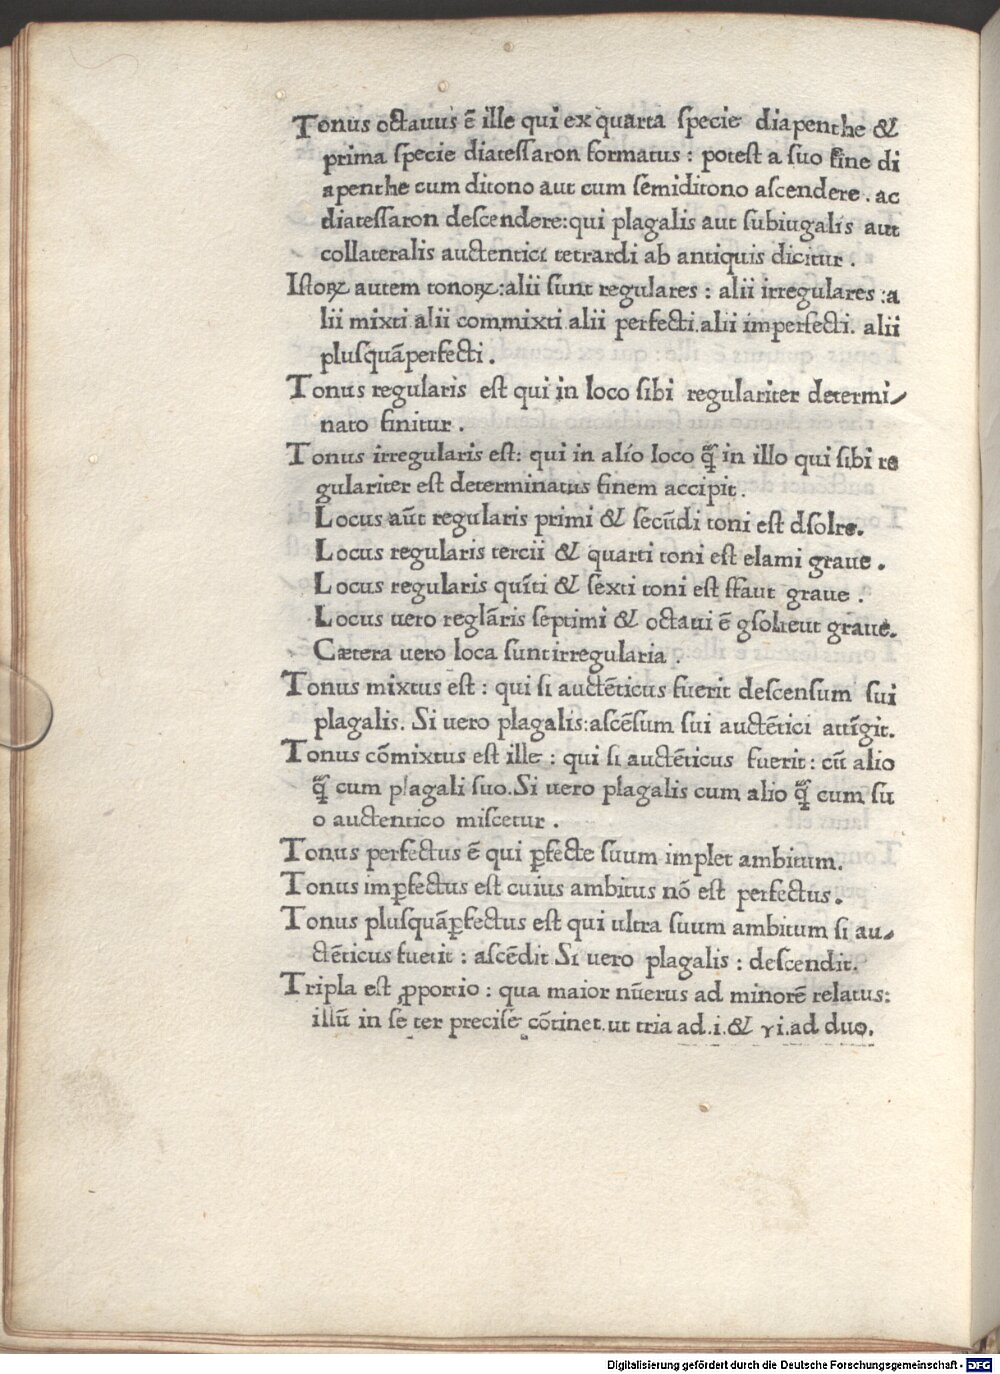 Tonus octauus ē ille qui ex quarta specie diapenthe &
prima specie diatessaron formatus : potest a suo fine di
apenthe cum ditono aut cum semiditono ascendere . ac
diatessaron descendere:qui plagalis aut subiugalis aut
collateralis auctentici tetrardi ab antiquis dicitur .
Istoꝝ autem tonoꝝ:alii sunt regulares : alii irregulares :a
lii mixti alii commixti alii perfecti.alii imperfecti. alii
plusquāperfecti .
Tonus regularis est qui in loco sibi regulariter determi/
nato finitur .
Tonus irregularis est: qui in alio loco qͣꝫ in illo qui sibi re
gulariter est determinatus finem accipit .
Locus aūt regularis primi & secūdi toni est dsolre.
Locus regularis tercii & quarti toni est elami graue .
Locus regularis quīti & sexti toni est ffaut graue .
Locus uero reglāris septimi & octaui ē gsolreut graue.
Cætera uero loca sunt irregularia .
Tonus mixtus est : qui si auctēticus fuerit descensum sui
plagalis. Si uero plagalis:ascēsum sui auctētici attīgit.
Tonus cōmixtus est ille : qui si auctēticus fuerit : cū alio
qͣꝫ cum plagali suo.Si uero plagalis cum alio qͣꝫ cum su
o auctentico miscetur .
Tonus perfectus ē qui ꝑfecte suum implet ambitum.
Tonus imꝑfectus est cuius ambitus nō est perfectus .
Tonus plusquāꝑfectus est qui ultra suum ambitum si au/
ctēticus fuerit : ascēdit Si uero plagalis : descendit.
Tripla est ꝓportio : qua maior nūerus ad minorē relatus:
illū in se ter precise cōtinet.ut tria ad.i.& vi.ad duo.
Digitalisierung gefördert durch die Deutsche Forschungsgemeinschaft - DFG